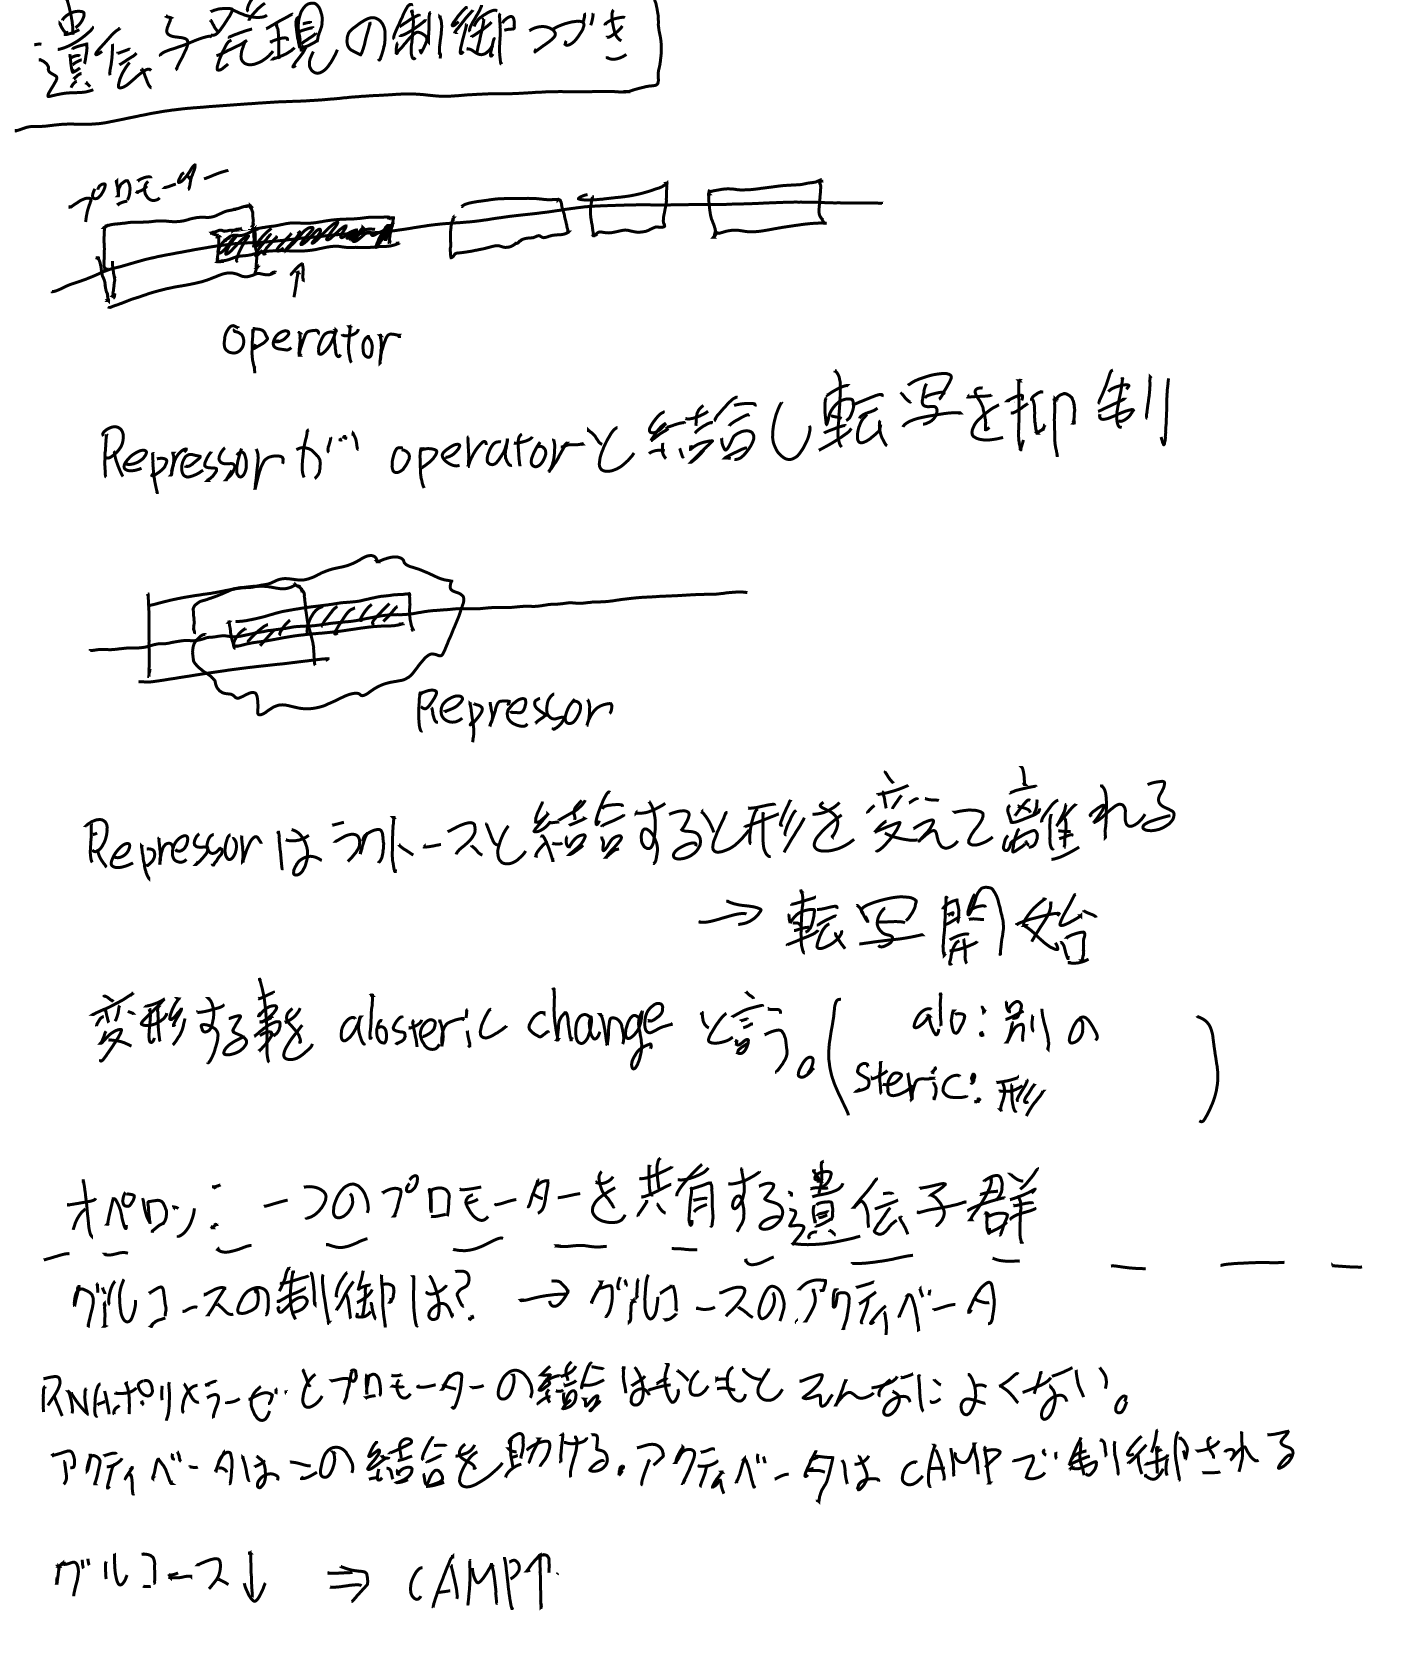 遺伝子発現の制御つづき
プロモーター
operator
Repressorが operatorと結合し転写を抑制
Repressor
Repressorはラクトースと結合すると形を変えて離れる
→ 転写開始
変形する事を alosteric change と言う。(alo:別の
steric:形)
オペロン: 一つのプロモーターを共有する遺伝子群
グルコースの制御は? → グルコースのアクティベータ
RNAポリメラーゼとプロモーターの結合はもともとそんなによくない。
アクティベータはこの結合を助ける.アクティベータは cAMPで制御される
グルコース↓ ⇒ cAMP↑